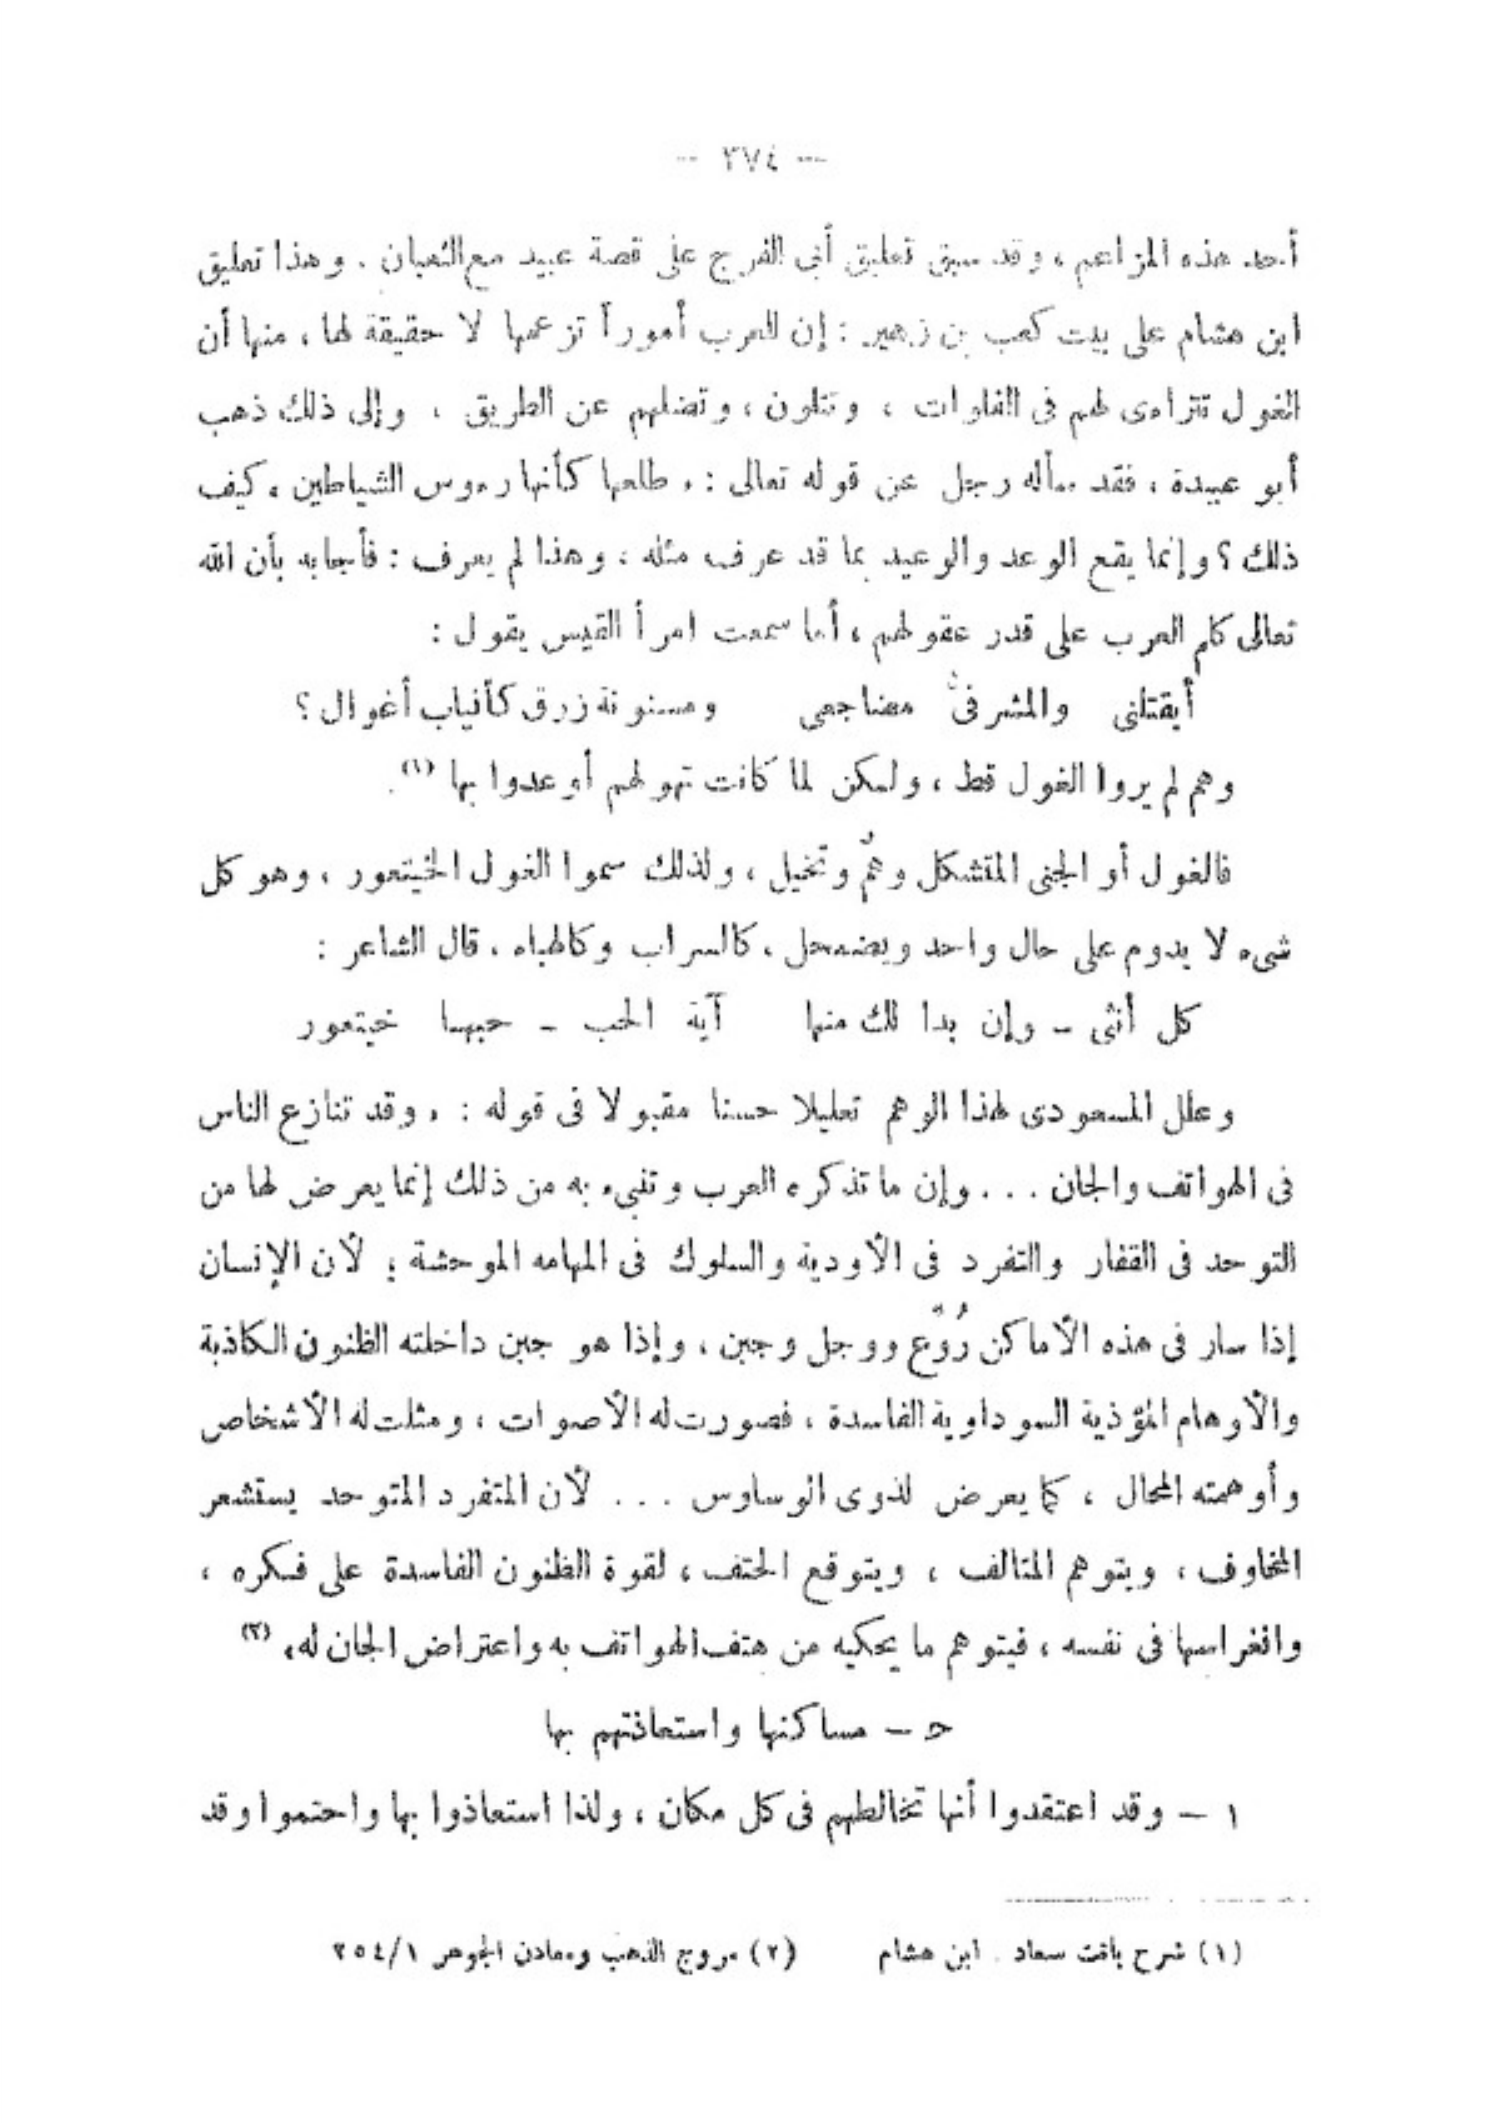 — ٣٧٤ —
أحد هذه المزاعم ، وقد سبق تعليق أبى الفرج على قصة عبيد مع الثعبان . وهذا تعليق
ابن هشام على بيت كعب بن زهير : إن للعرب أموراً تزعمها لا حقيقة لها ، منها أن
الغول تتراءى لهم فى الفلوات ، وتتلون ، وتضلهم عن الطريق ، وإلى ذلك ذهب
أبو عبيدة ، فقد سأله رجل عن قوله تعالى : « طلعها كأنها رءوس الشياطين » كيف
ذلك ؟ وإنما يقع الوعد والوعيد بما قد عرف مثله ، وهذا لم يعرف : فأجابه بأن الله
تعالى كلم العرب على قدر عقولهم ، أما سمعت امرأ القيس يقول :
أيقتلنى والمشرفىُّ مضاجعى ومسنونة زرق كأنياب أغوال ؟
وهم لم يروا الغول قط ، ولكن لما كانت تهولهم أوعدوا بها (١).
فالغول أو الجنى المتشكل وهمٌ وتخيل ، ولذلك سموا الغول الخيتعور ، وهو كل
شىء لا يدوم على حال واحد ويضمحل ، كالسراب وكالهباء . قال الشاعر :
كل أنثى – وإن بدا لك منها آية الحب – حبها خيتعور
وعلل المسعودى لهذا الوهم تعليلا حسنا مقبولا فى قوله : « وقد تنازع الناس
فى الهواتف والجان ... وإن ما تذكره العرب وتنبىء به من ذلك إنما يعرض لها من
التوحد فى القفار والتفرد فى الأودية والسلوك فى المهامه الموحشة ؛ لأن الإنسان
إذا سار فى هذه الأماكن رُوِّع ووجل وجبن ، وإذا هو جبن داخلته الظنون الكاذبة
والأوهام المؤذية السوداوية الفاسدة ، فصورت له الأصوات ، ومثلت له الأشخاص
وأوهمته المحال ، كما يعرض لذوى الوساوس ... لأن المتفرد المتوحد يستشعر
المخاوف ، ويتوهم المتالف ، ويتوقع الحتف ، لقوة الظنون الفاسدة على فكره ،
وانغراسها فى نفسه ، فيتوهم ما يحكيه من هتف الهواتف به واعتراض الجان له» (٢)
ح – مساكنها واستعاذتهم بها
١ – وقد اعتقدوا أنها تخالطهم فى كل مكان ، ولذا استعاذوا بها واحتموا وقد
(١) شرح بانت سعاد . ابن هشام (٢) مروج الذهب ومعادن الجوهر ١/٢٥٤